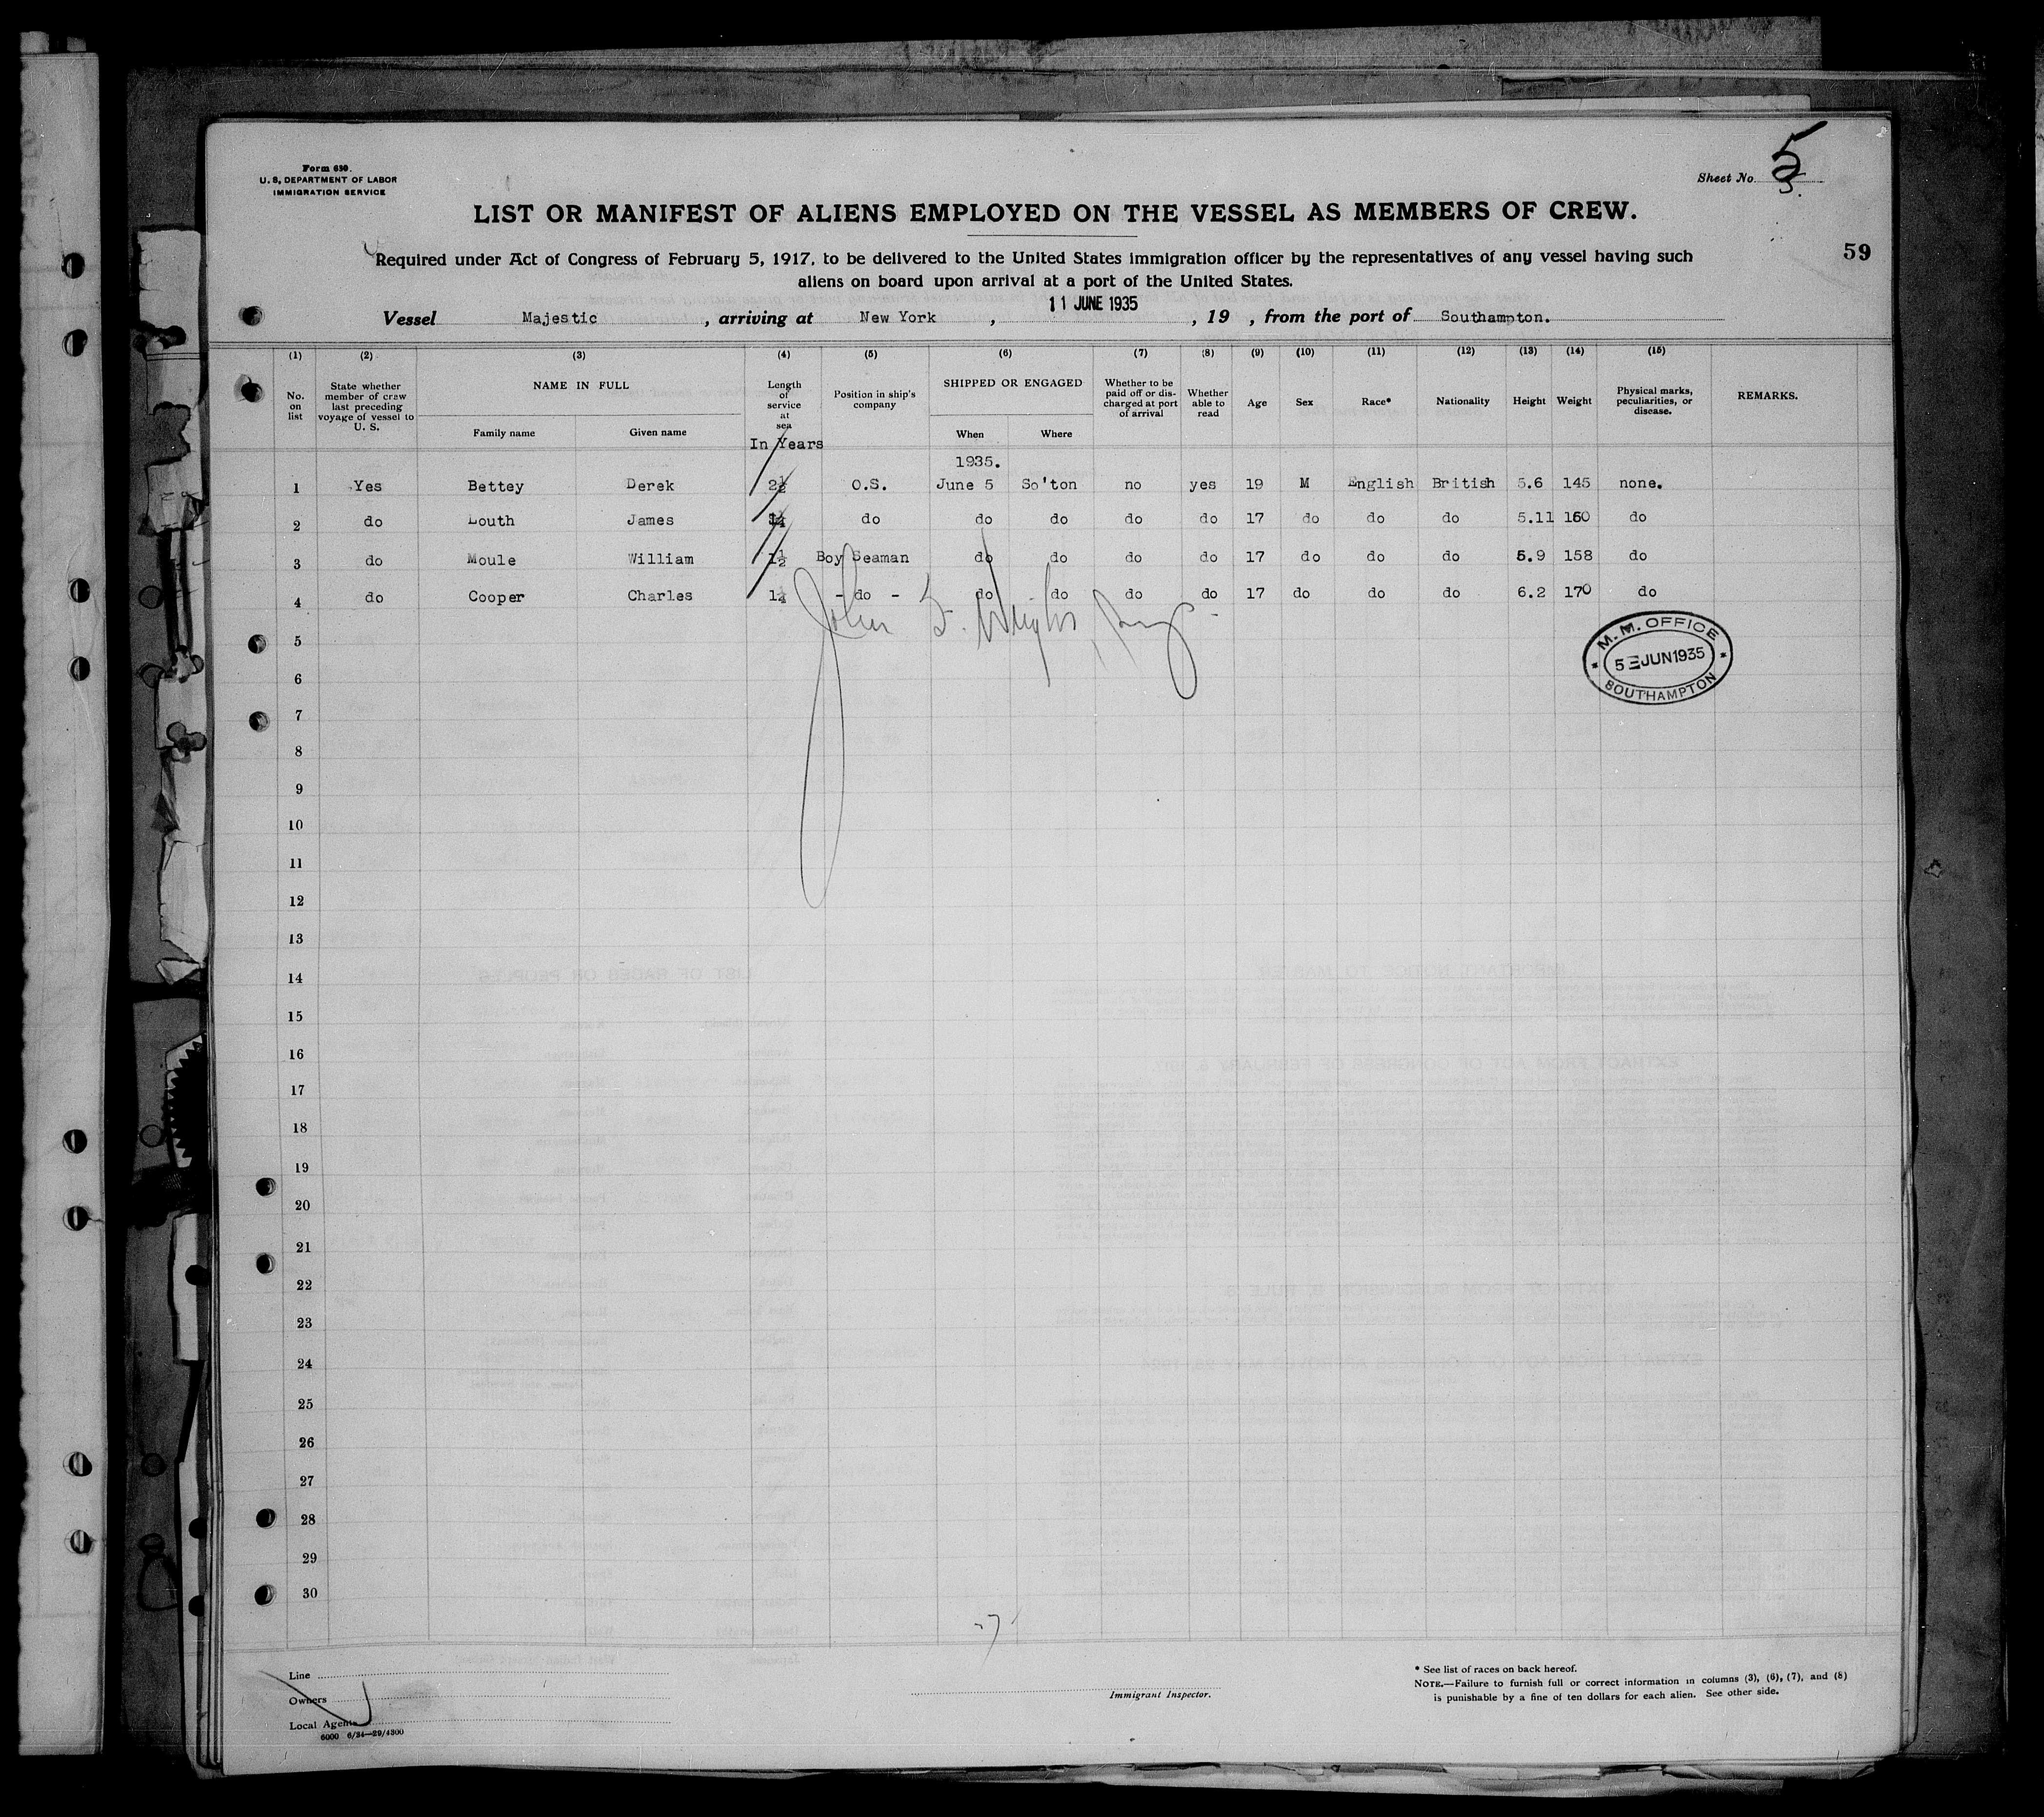 Form 630.
U. S. DEPARTMENT OF LABOR
IMMIGRATION SERVICE
Sheet No. 5
LIST OR MANIFEST OF ALIENS EMPLOYED ON THE VESSEL AS MEMBERS OF CREW.
59
Required under Act of Congress of February 5, 1917, to be delivered to the United States immigration officer by the representatives of any vessel having such
aliens on board upon arrival at a port of the United States.
Vessel Majestic, arriving at New York, 11 JUNE 1935, 19 , from the port of Southampton.
(1) (2) (3) (4) (5) (6) (7) (8) (9) (10) (11) (12) (13) (14) (15)
No. on list State whether member of crew last preceding voyage of vessel to U. S. NAME IN FULL Family name Given name Length of service at sea In Years Position in ship's company SHIPPED OR ENGAGED When Where Whether to be paid off or discharged at port of arrival Whether able to read Age Sex Race* Nationality Height Weight Physical marks, peculiarities, or disease. REMARKS.
1935.
1 Yes Bettey Derek 2½ O.S. June 5 So'ton no yes 19 M English British 5.6 145 none.
2 do Louth James do do do do do 17 do do do 5.11 160 do
3 do Moule William 1½ Boy Seaman do do do do 17 do do do 5.9 158 do
4 do Cooper Charles 1¼ - do - do do do do 17 do do do 6.2 170 do
John
M.M. OFFICE
5 JUN 1935
SOUTHAMPTON
5
6
7
8
9
10
11
12
13
14
15
16
17
18
19
20
21
22
23
24
25
26
27
28
29
30
Line
Owners
Local Agents
6000 6/34—29/4300
Immigrant Inspector.
* See list of races on back hereof.
NOTE.—Failure to furnish full or correct information in columns (3), (6), (7), and (8)
is punishable by a fine of ten dollars for each alien. See other side.